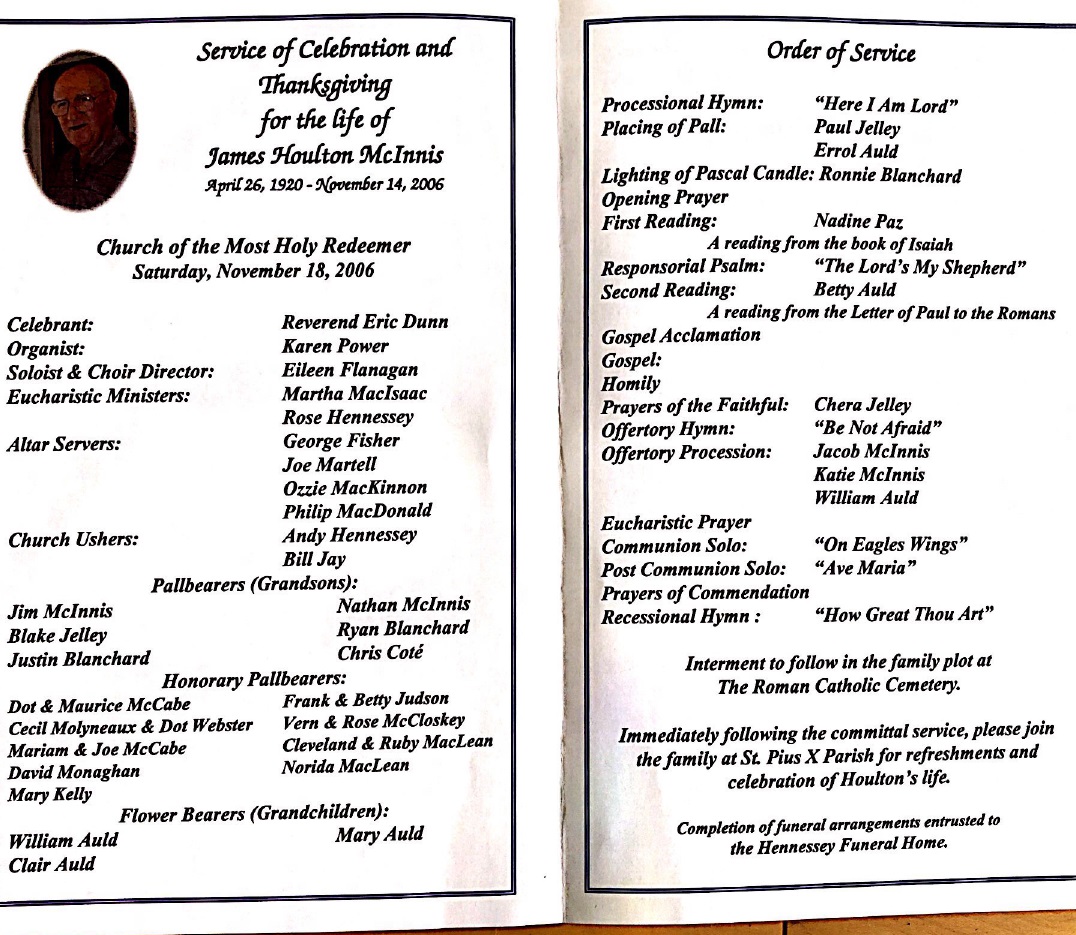 Service of Celebration and
Thanksgiving
for the life of
James Houlton McInnis
April 26, 1920 - November 14, 2006
Church of the Most Holy Redeemer
Saturday, November 18, 2006
Celebrant: Reverend Eric Dunn
Organist: Karen Power
Soloist & Choir Director: Eileen Flanagan
Eucharistic Ministers: Martha MacIsaac
Rose Hennessey
Altar Servers: George Fisher
Joe Martell
Ozzie MacKinnon
Philip MacDonald
Church Ushers: Andy Hennessey
Bill Jay
Pallbearers (Grandsons):
Jim McInnis Nathan McInnis
Blake Jelley Ryan Blanchard
Justin Blanchard Chris Coté
Honorary Pallbearers:
Dot & Maurice McCabe Frank & Betty Judson
Cecil Molyneaux & Dot Webster Vern & Rose McCloskey
Mariam & Joe McCabe Cleveland & Ruby MacLean
David Monaghan Norida MacLean
Mary Kelly
Flower Bearers (Grandchildren):
William Auld Mary Auld
Clair Auld
Order of Service
Processional Hymn: “Here I Am Lord”
Placing of Pall: Paul Jelley
Errol Auld
Lighting of Pascal Candle: Ronnie Blanchard
Opening Prayer
First Reading: Nadine Paz
A reading from the book of Isaiah
Responsorial Psalm: “The Lord’s My Shepherd”
Second Reading: Betty Auld
A reading from the Letter of Paul to the Romans
Gospel Acclamation
Gospel:
Homily
Prayers of the Faithful: Chera Jelley
Offertory Hymn: “Be Not Afraid”
Offertory Procession: Jacob McInnis
Katie McInnis
William Auld
Eucharistic Prayer
Communion Solo: “On Eagles Wings”
Post Communion Solo: “Ave Maria”
Prayers of Commendation
Recessional Hymn : “How Great Thou Art”
Interment to follow in the family plot at
The Roman Catholic Cemetery.
Immediately following the committal service, please join
the family at St. Pius X Parish for refreshments and
celebration of Houlton’s life.
Completion of funeral arrangements entrusted to
the Hennessey Funeral Home.